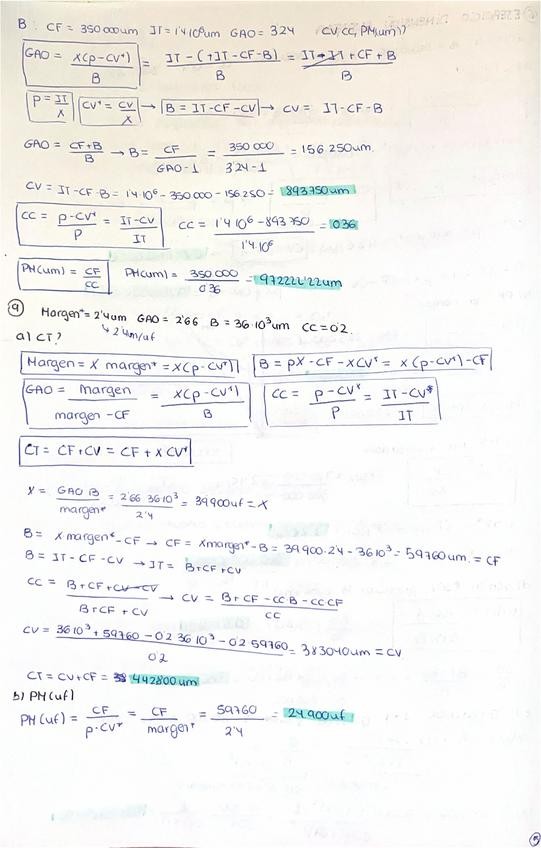 B: CF = 350000um IT = 1'4·10⁶um GAO = 3'24 CV, CC, PM(um)?
GAO = x(p-cv*) / B = IT-(+IT-CF-B) / B = IT-IT+CF+B / B
p = IT/x CV* = CV/x → B = IT-CF-CV → CV = IT-CF-B
GAO = CF+B / B → B = CF / GAO-1 = 350 000 / 3'24-1 = 156.250um.
CV = IT-CF-B = 1'4·10⁶ - 350000 - 156.250 = 893750um
CC = p-cv* / p = IT-CV / IT CC = 1'4·10⁶ - 893 750 / 1'4·10⁶ = 0'36
PM(um) = CF / CC PM(um) = 350 000 / 0'36 = 972222'22um
9 Margen* = 2'4um GAO = 2'66 B = 36·10³um CC = 0'2.
↳ 2'4um/uf
a) CT?
Margen = x margen* = x(p-cv*) B = px-CF-xCV* = x(p-cv*)-CF
GAO = margen / margen-CF = x(p-cv*) / B CC = p-cv* / p = IT-CV* / IT
CT = CF+CV = CF + x CV*
x = GAO B / margen* = 2'66 36·10³ / 2'4 = 39900uf = x
B = x margen*-CF → CF = xmargen*-B = 39900·2'4-36·10³ = 59760um. = CF
B = IT-CF-CV → IT = B+CF+CV
CC = B+CF+CV-CV / B+CF+CV → CV = B+CF-CCB-CCCF / CC
CV = 36·10³+59760-0'2 36·10³-0'2 59760 / 0'2 = 383040um = CV
CT = CV+CF = 442800um
b) PM(uf)
PM(uf) = CF / p-CV* = CF / margen* = 59760 / 2'4 = 24.900uf